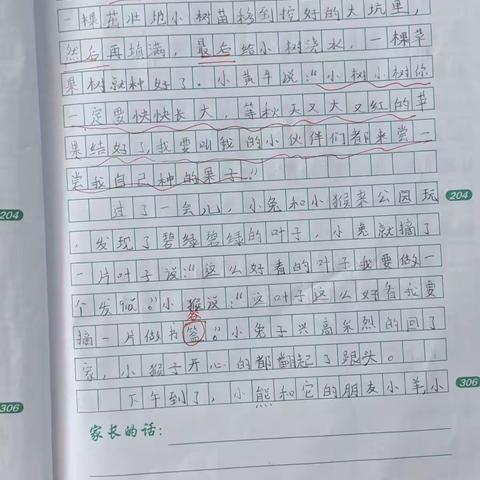 一棵茁壮地小树苗移到挖好的大坑里,
然后再填满,最后给小树浇水,一棵苹
果树就种好了。小黄牛说:“小树小树你
一定要快快长大,等秋天又大又红的苹
果结好了,我要叫我的小伙伴们都来尝一
尝我自己种的果子。”
过了一会儿,小兔和小猴来公园玩
204
204
,发现了碧绿碧绿的叶子,小兔就摘了
一片叶子说:“这么好看的叶子我要做一
个发饭。”小猴说:“这叶子这么好看我要
签
摘一片做书签。”小兔子兴高采烈的回了
家,小猴子开心的都翻起了跟头。
306
下午到了,小熊和它的朋友小羊小
306
家长的话: